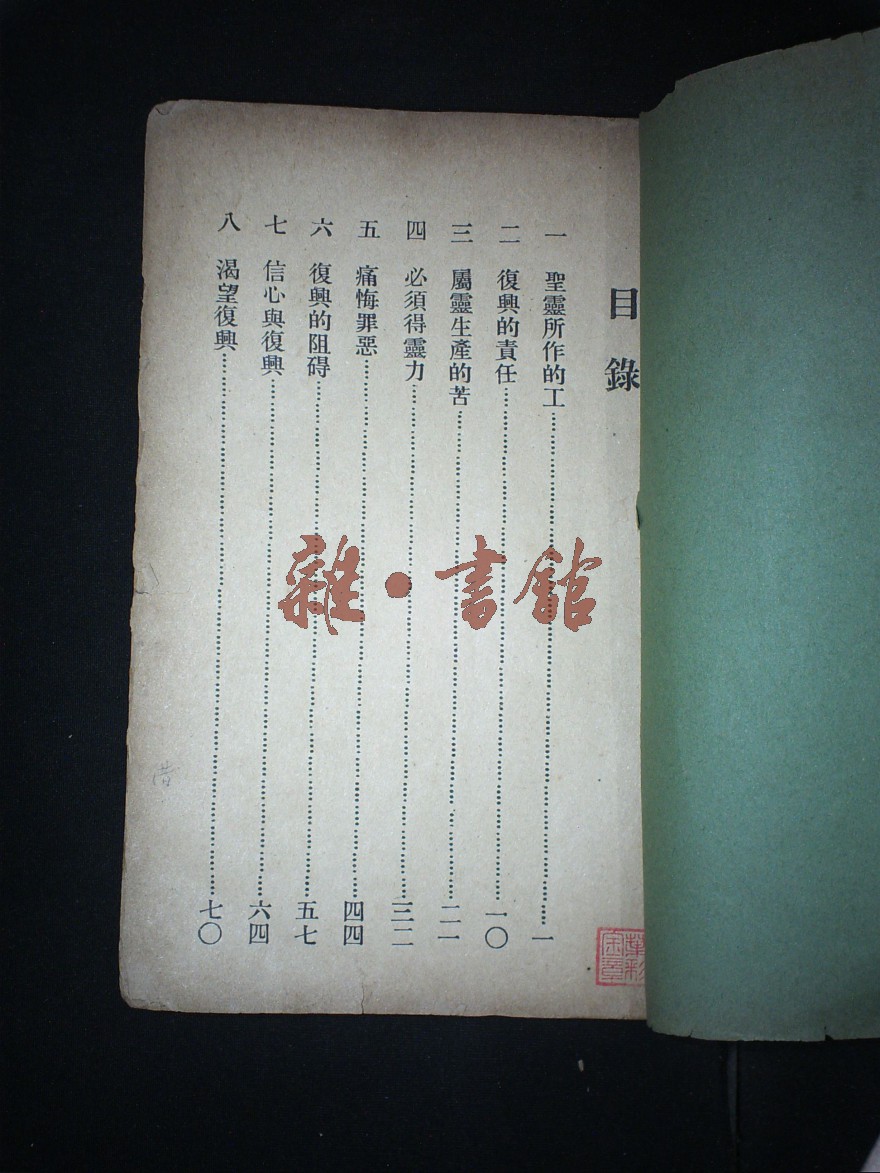 目錄
一 聖靈所作的工……一
二 復興的責任……一〇
三 屬靈生產的苦……二一
四 必須得靈力……三二
五 痛悔罪惡……四四
六 復興的阻碍……五七
七 信心與復興……六四
八 渴望復興……七〇
雜·書館